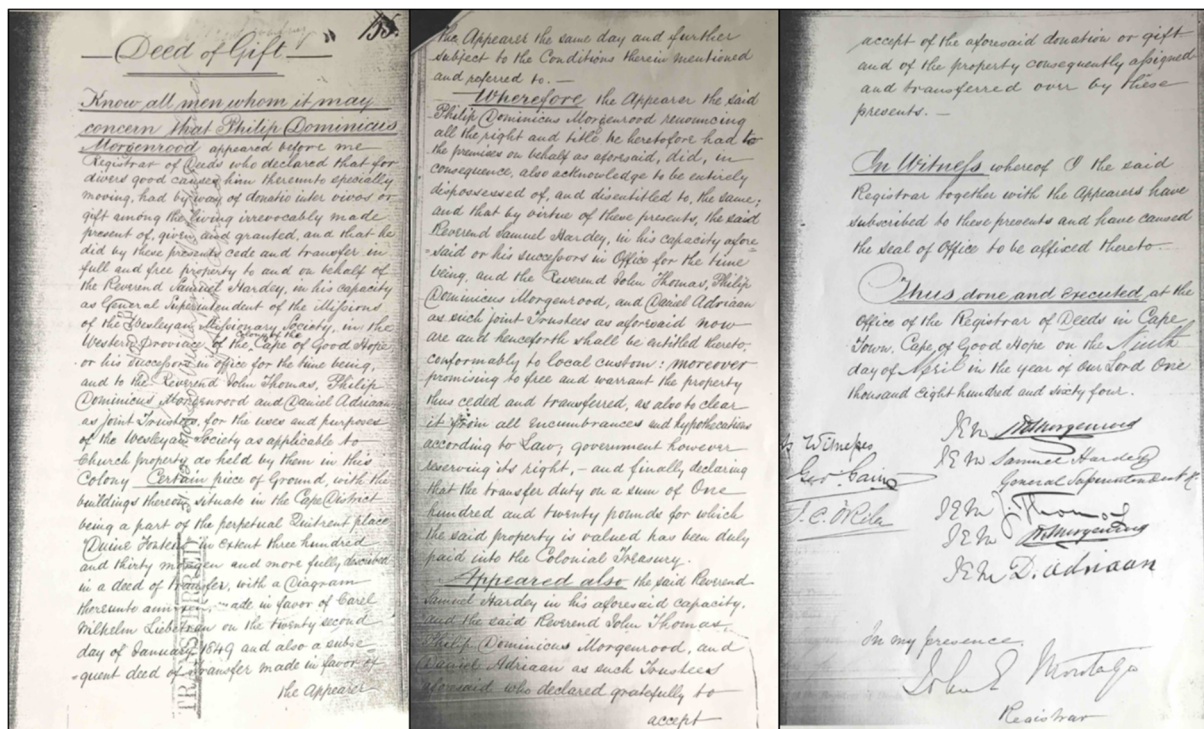 Deed of Gift
155.
Know all men whom it may
concern that Philip Dominicus
Morgenrood appeared before me
Registrar of Deeds who declared that for
divers good causes him thereunto specially
moving, had by way of donatio inter vivos or
gift among the living irrevocably made
present of, given and granted, and that he
did by these presents cede and transfer in
full and free property to and on behalf of
the Reverend Samuel Hardey, in his capacity
as General Superintendent of the Missions
of the Wesleyan Missionary Society, in the
Western Province of the Cape of Good Hope
or his successors in office for the time being,
and to the Reverend John Thomas, Philip
Dominicus Morgenrood and Daniel Adriaan
as joint Trustees, for the uses and purposes
of the Wesleyan Society as applicable to
Church property as held by them in this
Colony Certain piece of Ground, with the
buildings thereon situate in the Cape District
being a part of the perpetual Quitrent place
in extent three hundred
and thirty morgen and more fully described
in a deed of transfer, with a Diagram
thereunto made in favor of Carel
Wilhelm Liebetrau on the twenty second
day of January 1849 and also a subse
=quent deed of transfer made in favor of
the Appearer
TRANSFERRED
the Appearer the same day and further
subject to the Conditions therein mentioned
and referred to. —
Wherefore the Appearer the said
Philip Dominicus Morgenrood renouncing
all the right and title he heretofore had to
the premises on behalf as aforesaid, did, in
consequence, also acknowledge to be entirely
dispossessed of, and disentitled to, the same;
and that by virtue of these presents, the said
Reverend Samuel Hardey, in his capacity afore=
=said or his successors in Office for the time
being, and the Reverend John Thomas, Philip
Dominicus Morgenrood, and Daniel Adriaan
as such joint Trustees as aforesaid now
are and henceforth shall be entitled thereto,
conformably to local custom; moreover
promising to free and warrant the property
thus ceded and transferred, as also to clear
it from all Encumbrances and hypothecations
according to Law; government however
reserving its right, — and finally declaring
that the transfer duty on a sum of One
hundred and twenty pounds for which
the said property is valued has been duly
paid into the Colonial Treasury.
Appeared also the said Reverend
Samuel Hardey in his aforesaid capacity,
and the said Reverend John Thomas
Philip Dominicus Morgenrood, and
Daniel Adriaan as such Trustees
aforesaid who declared gratefully to
accept
accept of the aforesaid donation or gift
and of the property consequently assigned
and transferred over by these
presents. —
In Witness whereof I the said
Registrar together with the Appearers have
subscribed to these presents and have caused
the seal of Office to be affixed thereto —
Thus done and executed, at the
Office of the Registrar of Deeds in Cape
Town, Cape of Good Hope on the Ninth
day of April in the year of our Lord One
thousand Eight hundred and sixty four.
Witnesses
Morgenrood
Samuel Hardey
General Superintendent
Geo. Cain
J. Thomas
Morgenrood
D. Adriaan
In my presence
John E Montagu
Registrar